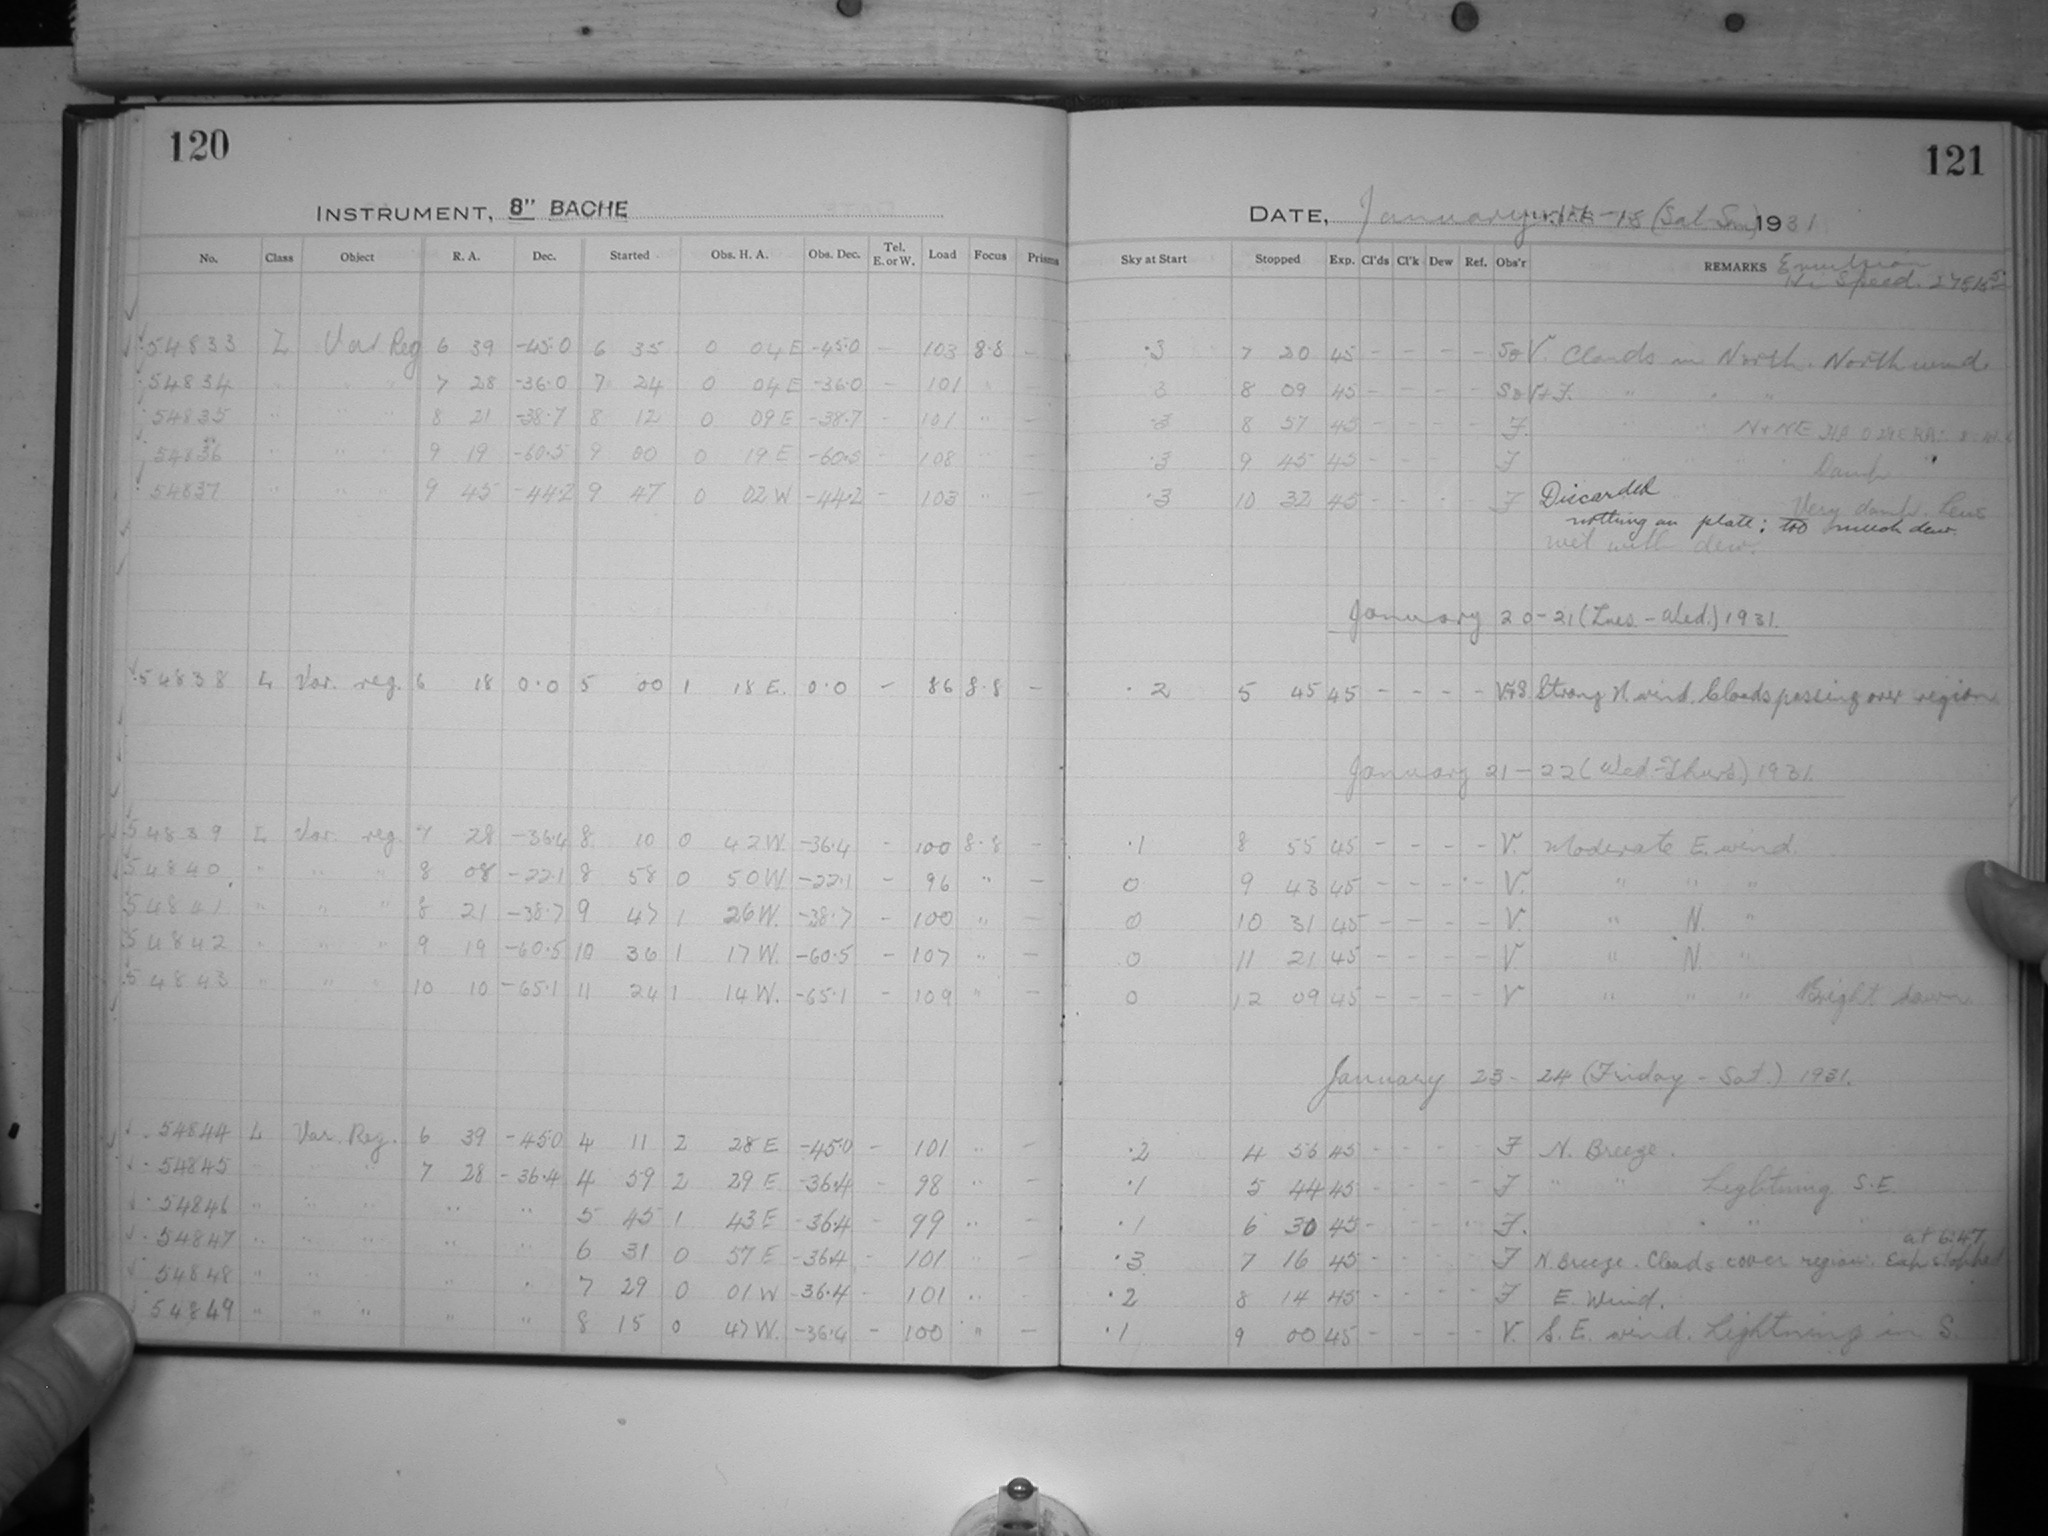 120
INSTRUMENT, 8" BACHE
No. Class Object R. A. Dec. Started Obs. H. A. Obs. Dec. Tel. E. or W. Load Focus Prisms
54833 L Var Reg 6 39 -45.0 6 35 0 04 E -45.0 - 103 8.8 -
54834 " " " 7 28 -36.0 7 24 0 04 E -36.0 - 101 " -
54835 " " " 8 21 -38.7 8 12 0 09 E -38.7 - 101 " -
54836 " " " 9 19 -60.5 9 00 0 19 E -60.5 - 108 " -
54837 " " " 9 45 -44.2 9 47 0 02 W -44.2 - 103 " -
54838 L Var. reg. 6 18 0.0 5 00 1 18 E. 0.0 - 86 8.8 -
54839 L Var. reg. 7 28 -36.4 8 10 0 42 W. -36.4 - 100 8.8 -
54840 " " " 8 08 -22.1 8 58 0 50 W -22.1 - 96 " -
54841 " " " 8 21 -38.7 9 47 1 26 W. -38.7 - 100 " -
54842 " " " 9 19 -60.5 10 36 1 17 W. -60.5 - 107 " -
54843 " " " 10 10 -65.1 11 24 1 14 W. -65.1 - 109 " -
54844 L Var. Reg. 6 39 -45.0 4 11 2 28 E -45.0 - 101 " -
54845 " " 7 28 -36.4 4 59 2 29 E -36.4 - 98 " -
54846 " " " " " 5 45 1 43 E -36.4 - 99 " -
54847 " " " " " 6 31 0 57 E -36.4 - 101 " -
54848 " " " " 7 29 0 01 W -36.4 - 101 " -
54849 " " " " " 8 15 0 47 W. -36.4 - 100 " -
121
DATE, January (Sat Sun) 1931
Sky at Start Stopped Exp. Cl'ds Cl'k Dew Ref. Obs'r REMARKS Emulsion
Hi Speed.
.3 7 20 45 - - - - V. Clouds in North. North wind
3 8 09 45 - - - - " " "
.3 8 57 45 - - - - F. " "
.3 9 45 45 - - - F " " " Damp "
.3 10 32 45 - - - F Discarded Very damp. Lens
nothing on plate: too much dew.
wet with dew.
January 20-21 (Tues. - Wed.) 1931.
.2 5 45 45 - - - - Strong N. wind. Clouds passing over region
January 21-22 (Wed-Thurs) 1931.
.1 8 55 45 - - - - V. Moderate E. wind.
0 9 43 45 - - - - V. " " "
0 10 31 45 - - - - V. " N. "
0 11 21 45 - - - - V " N. "
0 12 09 45 - - - - V " " " Bright dawn
January 23-24 (Friday - Sat.) 1931.
.2 4 56 45 - - - - F N. Breeze.
.1 5 44 45 - - - - F " " Lightning S.E.
.1 6 30 45 - - - F. " "
at 6:47
.3 7 16 45 - - - F N. Breeze. Clouds cover region. Exp stopped
.2 8 14 45 - - - F E. Wind.
.1 9 00 45 - - - - V. S. E. wind. Lightning in S.